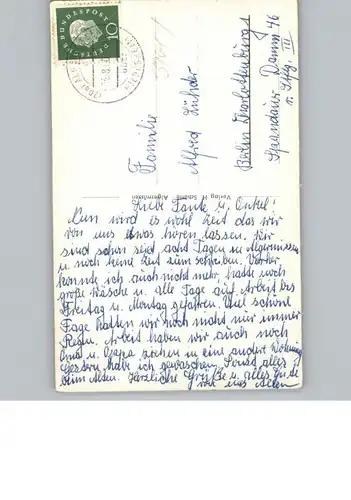 DEUTSCHE BUNDESPOST
10
Familie
Alfred
Berlin Charlottenburg
Spandauer Damm 46
III
Verlag H. Algermissen
Liebe Tante u. Onkel!
Nun wird es wohl Zeit das wir
von uns etwas hören lassen. Wir
sind schon seid acht Tagen in Algermissen
u. noch keine Zeit zum schreiben. Vorher
konnte ich auch nicht mehr, hatte noch
große Wäsche u. alle Tage auf Arbeit bis
Freitag u. Montag gefahren. Viel schöne
Tage hatten wir noch nicht nur immer
Regen. Arbeit haben wir auch noch
Oma u. Opapa ziehen in eine andere Wohnung
Gestern habe ich gewaschen. Sonst alles
beim Alten. Herzliche Grüße u. alles Gute
von uns Allen